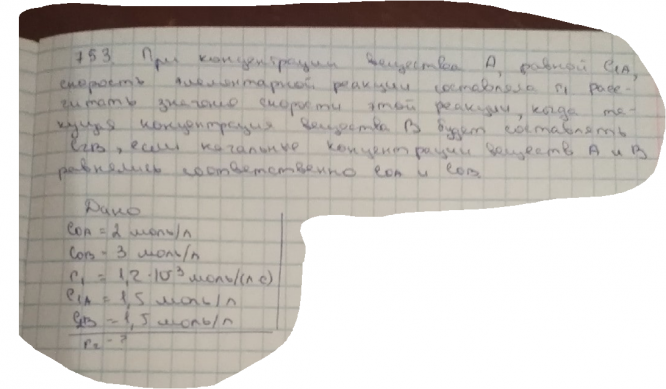 753 При концентрации вещества A, равной C1A,
скорость элементарной реакции составляла r1 расс-
читать значение скорости этой реакции, когда те-
кущая концентрация вещества B будет составлять
C2B, если начальные концентрации веществ A и B
равнялись соответственно C0A и C0B
Дано
C0A = 2 моль/л
C0B = 3 моль/л
r1 = 1,2·10⁻³ моль/(л с)
C1A = 1,5 моль/л
C2B = 1,5 моль/л
r2 - ?